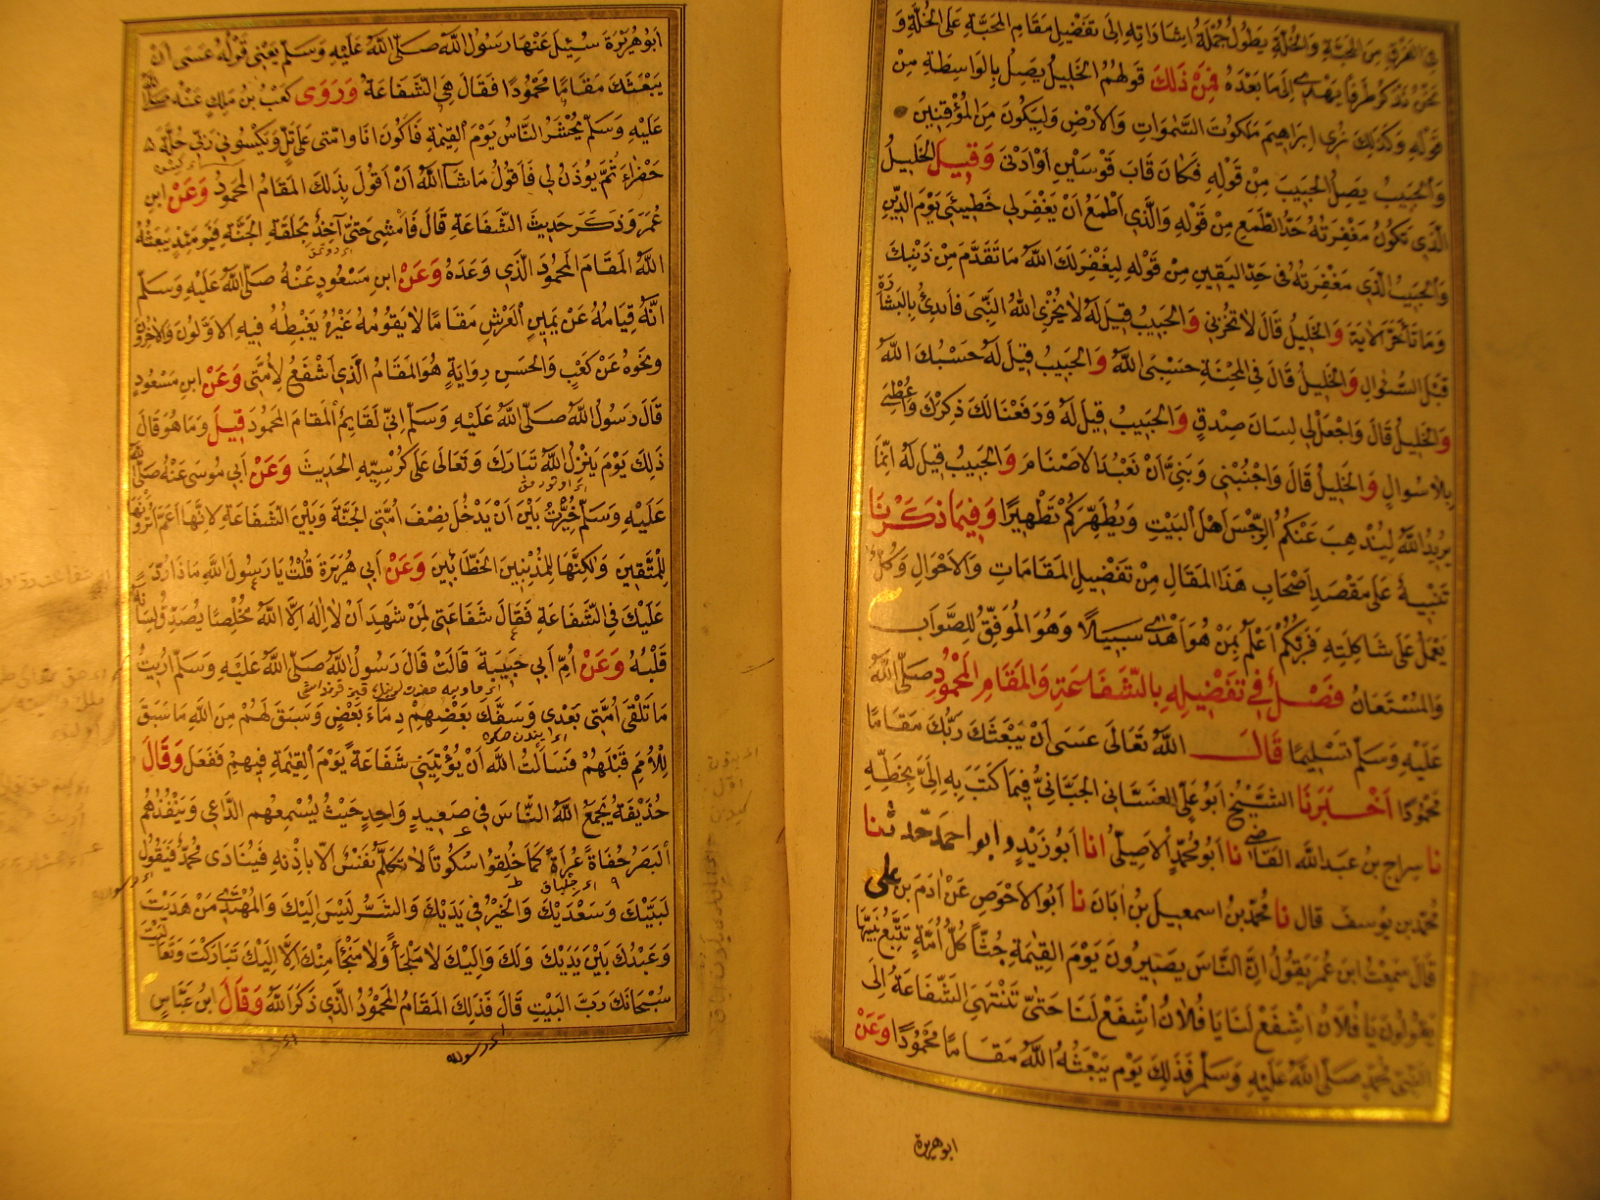 في الفرق بين المحبة والخلة يطول جملة اشاراته الى تفضيل مقام المحبة على الخلة و
نحن نذكر طرفا يهدى الى ما بعده فمن ذلك قولهم الخليل يصل بالواسطة من
قوله وكذلك نرى ابراهيم ملكوت السموات والارض وليكون من الموقنين
والحبيب يصل الحبيب من قوله فكان قاب قوسين او ادنى وقيل الخليل
الذى تكون مغفرته حد الطمع من قوله والذى اطمع ان يغفر لى خطيئتى يوم الدين
والحبيب الذى مغفرته فى حد اليقين من قوله ليغفر لك الله ما تقدم من ذنبك
وما تأخر الاية والخليل قال لا تخزنى والحبيب قيل له لا يخزى الله النبى فابتدئ بالبشارة
قبل السؤال والخليل قال فى المحنة حسبى الله والحبيب قيل له حسبك الله
والخليل قال واجعل لى لسان صدق والحبيب قيل له ورفعنا لك ذكرك واعطى
بلا سوال والخليل قال واجنبنى وبنى ان نعبد الاصنام والحبيب قيل له انما
يريد الله ليذهب عنكم الرجس اهل البيت ويطهركم تطهيرا وفيما ذكرنا
تنبيه على مقصد اصحاب هذا المقال من تفضيل المقامات والاحوال وكل
يعمل على شاكلته فربكم اعلم بمن هو اهدى سبيلا وهو الموفق للصواب
والمستعان فصل فى تفضيله بالشفاعة والمقام المحمود صلى الله
عليه وسلم تسليما قال الله تعالى عسى ان يبعثك ربك مقاما
محمودا اخبرنا الشيخ ابو على الغسانى الجيانى فيما كتب به الى بخطه
نا سراج بن عبد الله القاضى نا ابو محمد الاصيلى انا ابو زيد و ابو احمد قالا ثنا
محمد بن يوسف قال نا محمد بن اسمعيل نا ابان نا ابو الاحوص عن ادم بن على
قال سمعت ابن عمر يقول ان الناس يصيرون يوم القيمة جثا كل امة تتبع نبيها
يقولون يا فلان اشفع لنا يا فلان اشفع لنا حتى تنتهى الشفاعة الى
النبى محمد صلى الله عليه وسلم فذلك يوم يبعثه الله مقاما محمودا وعن
ابو هريرة
ابو هريرة سئل عنها رسول الله صلى الله عليه وسلم يعنى قوله عسى ان
يبعثك مقاما محمودا فقال هى الشفاعة وروى كعب بن ملك عنه صلى الله
عليه وسلم يحشر الناس يوم القيمة فاكون انا وامتى على تل ويكسونى ربى حلة
خضراء ثم يوذن لى فاقول ما شا الله ان اقول بذلك المقام المحمود وعن ابن
عمر وذكر حديث الشفاعة قال فامشى حتى آخذ بحلقة الجنة فيومئذ يبعثه
الله المقام المحمود الذى وعده وعن ابن مسعود عنه صلى الله عليه وسلم
انه قيامه عن يمين العرش مقاما لا يقومه غيره يغبطه فيه الاولون والاخرون
ونحوه عن كعب والحسن رواية هو المقام الذى اشفع لامتى وعن ابن مسعود
قال رسول الله صلى الله عليه وسلم انى لقايم المقام المحمود قيل وما هو قال
ذلك يوم ينزل الله تبارك وتعالى على كرسيه الحديث وعن ابى موسى عنه صلى الله
عليه وسلم خيرت بين ان يدخل نصف امتى الجنة وبين الشفاعة لانها اعم اترونها
للمتقين ولكنها للمذنبين الخطايين وعن ابى هريرة قلت يا رسول الله ماذا ورد
عليك فى الشفاعة فقال شفاعتى لمن شهد ان لا اله الا الله مخلصا يصدق لسانه
قلبه وعن ام ابى حبيبة قالت قال رسول الله صلى الله عليه وسلم اريت
ما تلقى امتى بعدى وسفك بعضهم دماء بعض وسبق لهم من الله ما سبق
للامم قبلهم فسالت الله ان يؤتينى شفاعة يوم القيمة فيهم ففعل وقال
حذيفة يجمع الله الناس فى صعيد واحد حيث يسمعهم الداعى وينفذهم
البصر حفاة عراة كما خلقوا سكوتا لا تكلم نفس الا باذنه فينادى محمد فيقول
لبيك وسعديك والخير فى يديك والشر ليس اليك والمهتدى من هديت
وعبدك بين يديك ولك واليك لا ملجأ ولا منجأ منك الا اليك تباركت وتعاليت
سبحانك رب البيت قال فذلك المقام المحمود الذى ذكر الله وقال ابن عباس